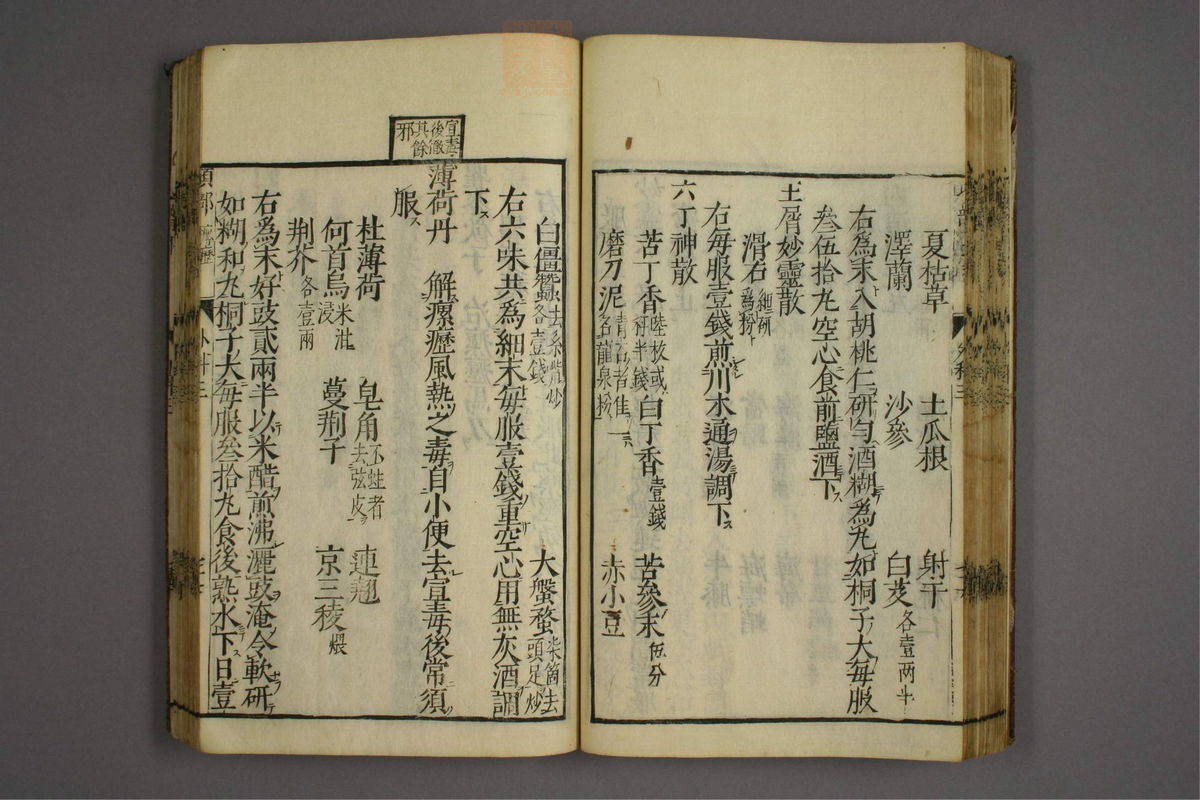 夏枯草 土瓜根 射干
澤蘭 沙參 白芨各壹兩半
右為末入胡桃仁研勻酒糊為丸如桐子大每服
叁伍拾丸空心食前鹽酒下ス
玉屑妙靈散
滑石細研為粉
右每服壹錢煎川木通湯調下ス
六丁神散
苦丁香陸枚或秤半錢 白丁香壹錢 苦參末伍分
磨刀泥青石者佳一名龍泉粉 赤小豆
白僵蠶去糸觜炒各壹錢 大螌蝥柒箇去頭足炒
右六味共為細末每服壹錢重空心用無灰酒調
下ス
宣毒後澂其餘邪
薄荷丹 解瘰癧風熱之毒自小便去宣毒後常須
服ス
杜薄荷 皂角不蛀者去弦皮 連翹
何首烏米泔浸 蔓荆子 京三稜煨
荆芥各壹兩
右為末好豉貳兩半以米醋煎沸灑豉淹令軟研
如糊和丸桐子大每服叁拾丸食後熟水下日壹